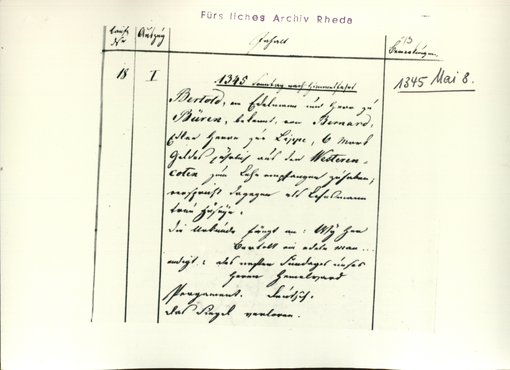 Fürstliches Archiv Rheda
Laufd. Nr. Auszug Inhalt Bemerkungen
18 I 1345 Sonntag nach Himmelfahrt 1345 Mai 8.
Bertold, ein Edelmann und Herr zu
Büren, bekennt, von Bernard,
Edler Herr zur Lippe, 6 Mark
Geldes jährlich aus den Westeren-
coten zum Lehn empfangen zu haben,
verspricht dagegen als Lehnsmann
treu
Die Urkunde fängt an: Wy Her
Bertolt ein edele man
endigt: des nesten Sundages unses
Heren Hemelvard
Pergament. Deutsch.
Das Siegel verloren.